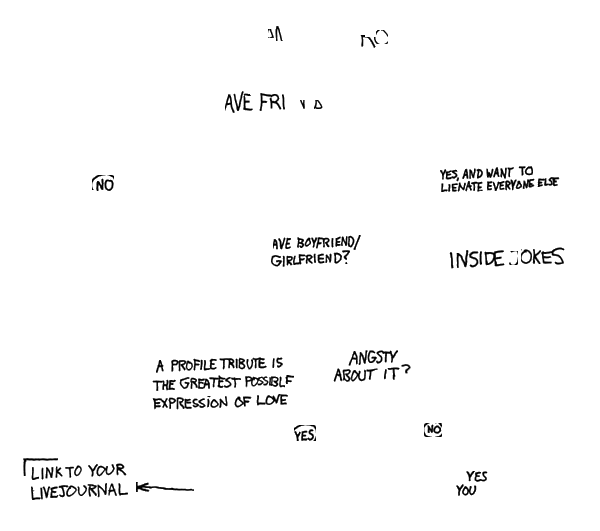 NO
AVE FRI
NO
YES, AND WANT TO
LIENATE EVERYONE ELSE
AVE BOYFRIEND/
GIRLFRIEND?
INSIDE JOKES
A PROFILE TRIBUTE IS
THE GREATEST POSSIBLE
EXPRESSION OF LOVE
ANGSTY
ABOUT IT?
YES
NO
LINK TO YOUR
LIVEJOURNAL
YES
YOU